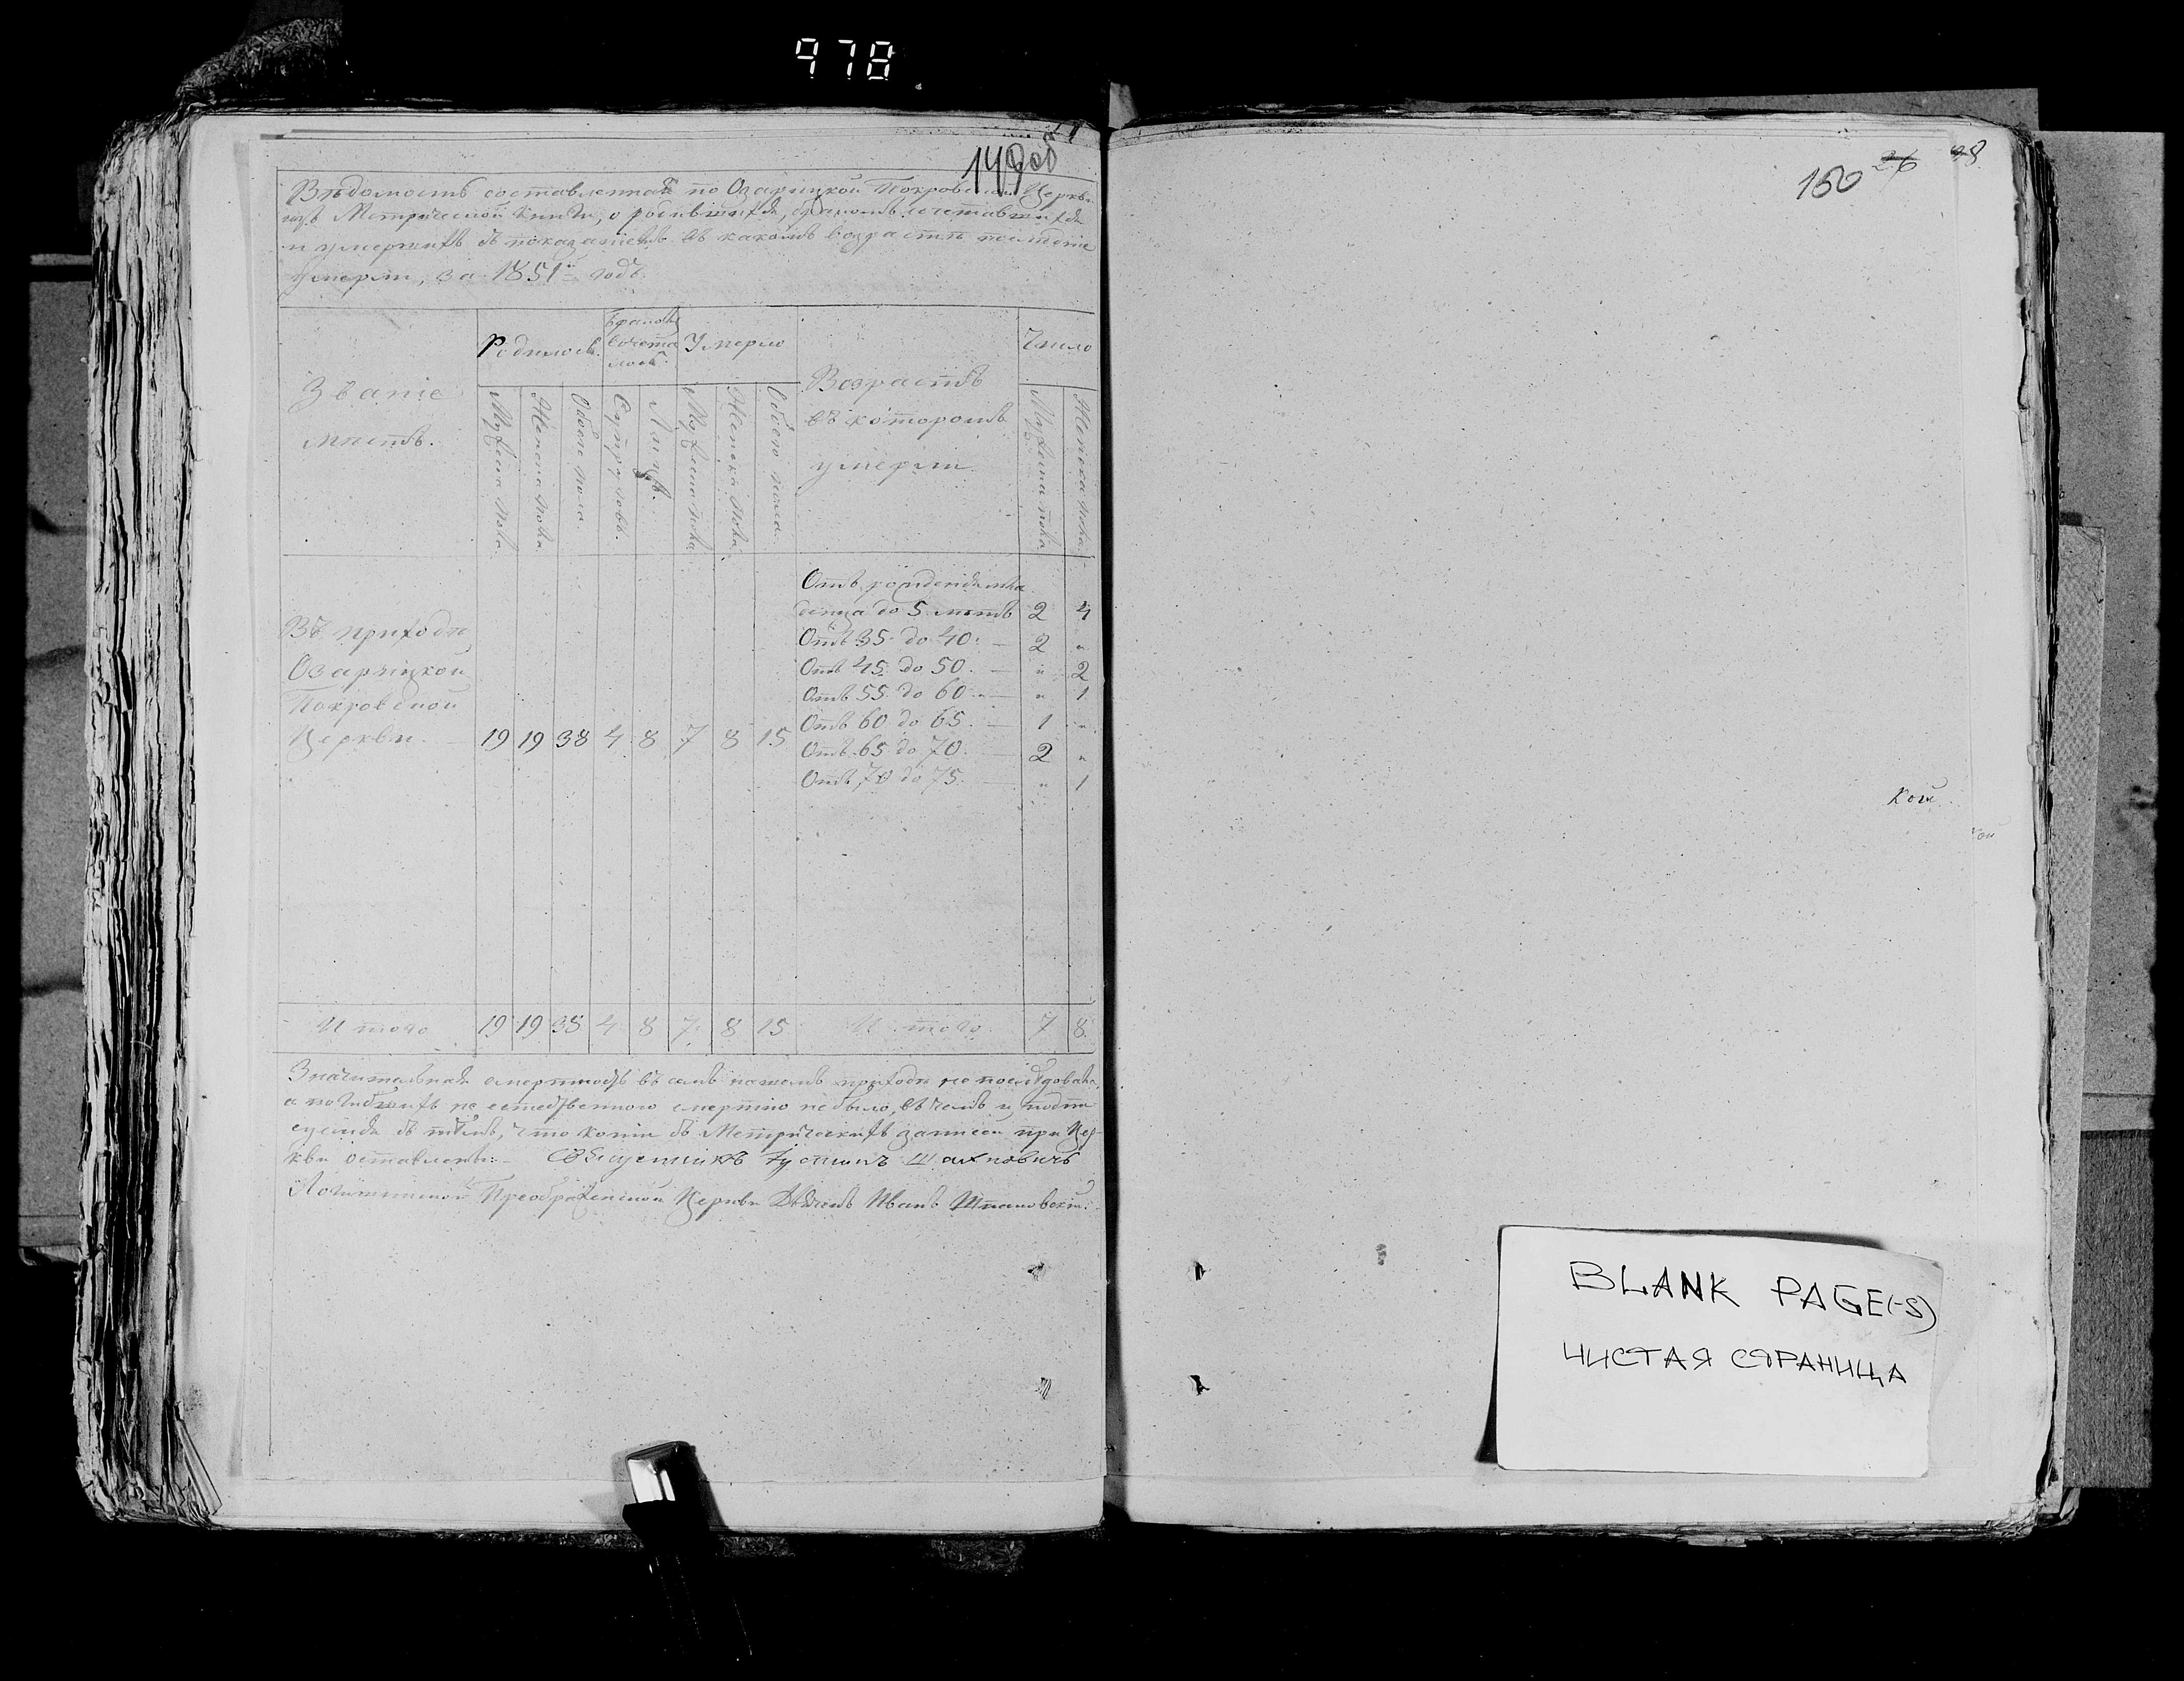 978
149 об
Вѣдомость составленная по Озаричкой Покровской Церкви
изъ Метрической книги, о родившихся, бракомъ сочетавшихся
и умершихъ съ показаніемъ въ какомъ возрастѣ послѣдніе
умерли, за 1851й годъ.
Званіе мѣстъ.
Родилось.
Бракомъ сочеталось.
Умерло
Возрастъ въ которомъ умерли
Число
Мужеска пола
Женска пола
Обоего пола.
Супруговъ.
Лицъ.
Мужеска пола
Женска пола
Обоего пола.
Мужеска пола
Женска пола
Въ приходѣ
Озаричкой
Покровской
Церкви. 19 19 38 4 8 7 8 15
Отъ рожденія мла
денца до 5 лѣтъ 2 4
Отъ 35 до 40. — 2 "
Отъ 45 до 50. — " 2
Отъ 55 до 60. — " 1
Отъ 60 до 65. — 1 "
Отъ 65 до 70. — 2 "
Отъ 70 до 75. — " 1
Итого 19 19 38 4 8 7 8 15 Итого 7 8
Значительная смертность въ семъ приходѣ не послѣдовала,
а погибшихъ не естественною смертію небыло, въ чемъ и подпи
суемся съ тѣмъ, что копіи съ Метрическихъ записей при Цер-
кви оставлены:- Священникъ Іустинъ
Преображенской Церкви Дьячекъ Иванъ
150 26 28
кой
кой
BLANK PAGE(-S)
ЧИСТАЯ СТРАНИЦА